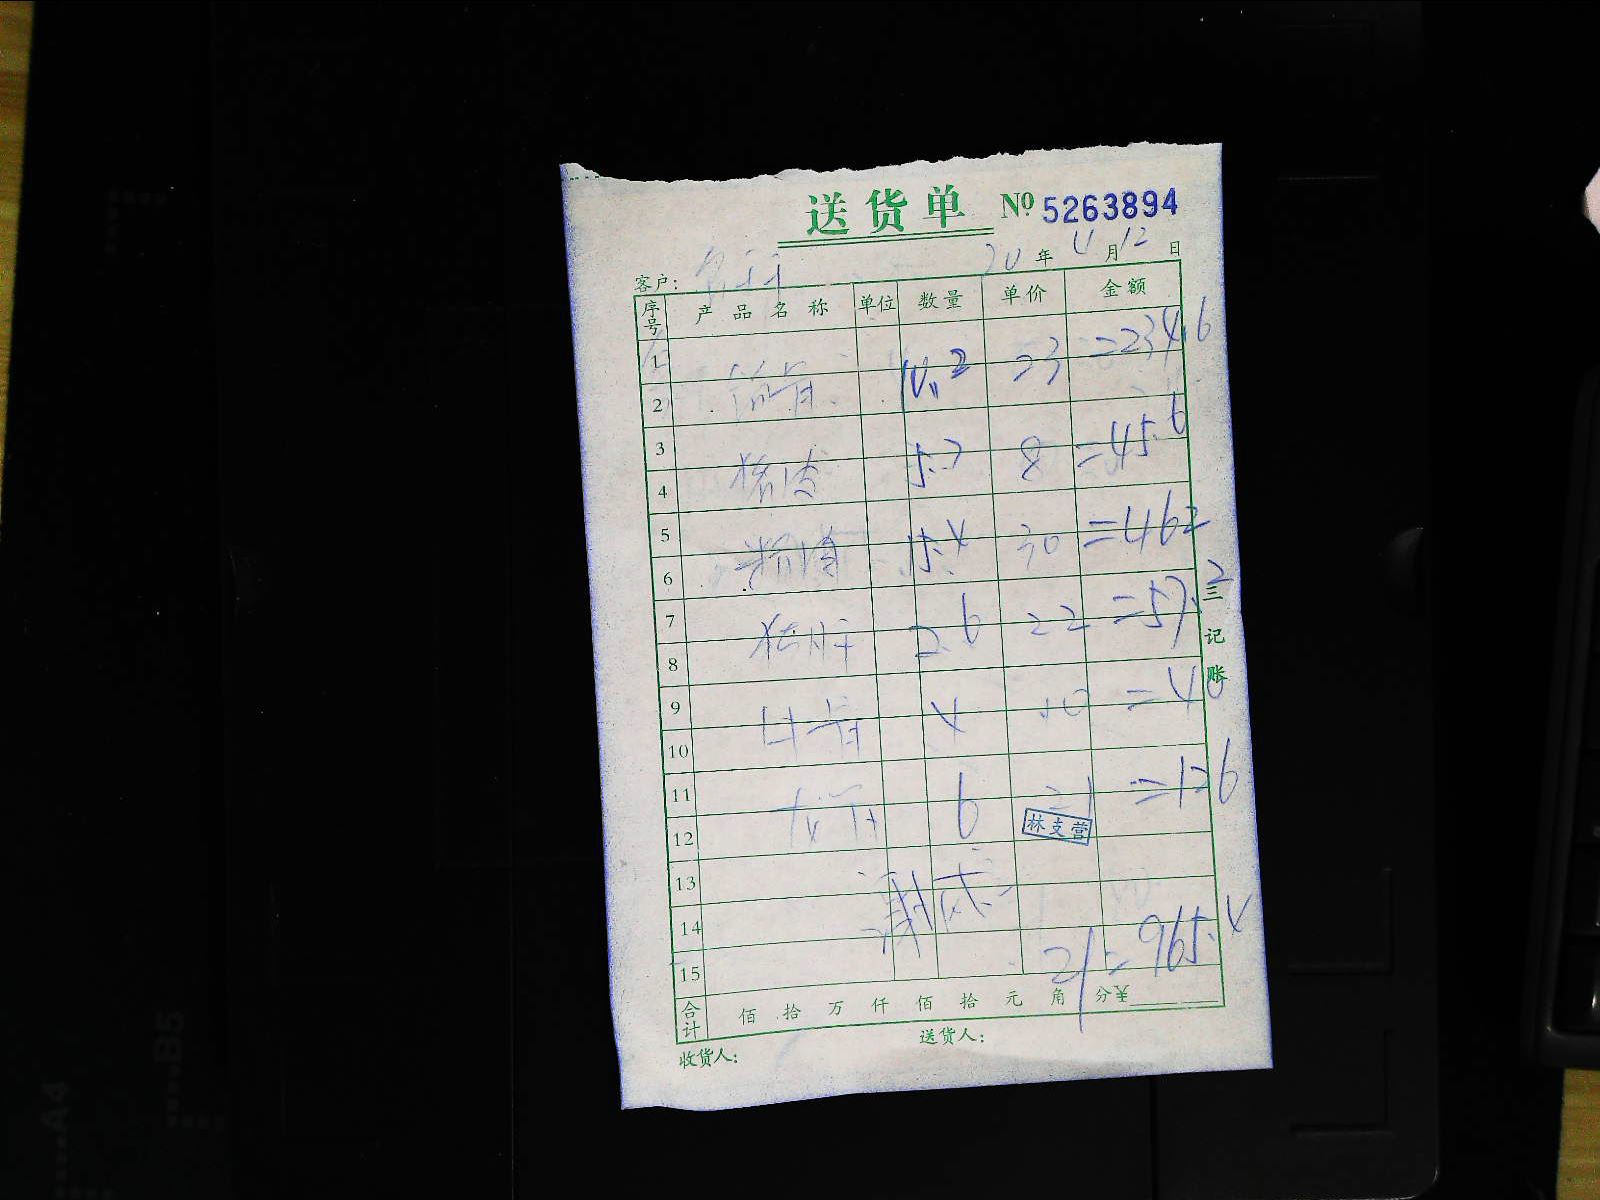 送货单 № 5263894
客户: 20 年 4 月 12 日
序号 产品名称 单位 数量 单价 金额
1
2 10.2 23 =234.6
3
4 猪皮 5.7 8 =45.6
5
6 15.4 30 =462
7
8 猪肝 2.6 22 =57.2
9
10 4 10 =40
11
12 6 21 =126
林支营
13
14
15 =965.4
合计 佰 拾 万 仟 佰 拾 元 角 分 ¥
收货人: 送货人:
三 记账